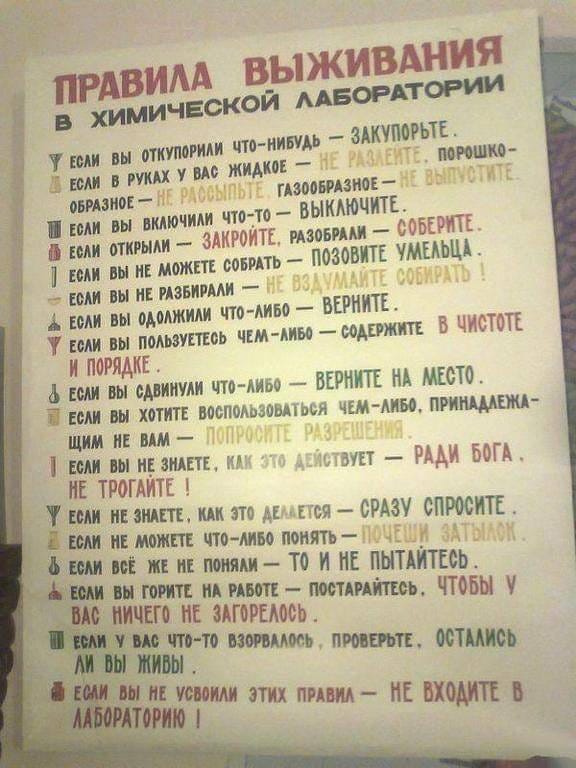 ПРАВИЛА ВЫЖИВАНИЯ
В ХИМИЧЕСКОЙ ЛАБОРАТОРИИ
ЕСЛИ ВЫ ОТКУПОРИЛИ ЧТО-НИБУДЬ — ЗАКУПОРЬТЕ.
ЕСЛИ В РУКАХ У ВАС ЖИДКОЕ — НЕ РАЗЛЕЙТЕ, ПОРОШКО-
ОБРАЗНОЕ — НЕ РАССЫПЬТЕ, ГАЗООБРАЗНОЕ — НЕ ВЫПУСТИТЕ.
ЕСЛИ ВЫ ВКЛЮЧИЛИ ЧТО-ТО — ВЫКЛЮЧИТЕ.
ЕСЛИ ОТКРЫЛИ — ЗАКРОЙТЕ, РАЗОБРАЛИ — СОБЕРИТЕ.
ЕСЛИ ВЫ НЕ МОЖЕТЕ СОБРАТЬ — ПОЗОВИТЕ УМЕЛЬЦА.
ЕСЛИ ВЫ НЕ РАЗБИРАЛИ — НЕ ВЗДУМАЙТЕ СОБИРАТЬ !
ЕСЛИ ВЫ ОДОЛЖИЛИ ЧТО-ЛИБО — ВЕРНИТЕ.
ЕСЛИ ВЫ ПОЛЬЗУЕТЕСЬ ЧЕМ-ЛИБО — СОДЕРЖИТЕ В ЧИСТОТЕ
И ПОРЯДКЕ.
ЕСЛИ ВЫ СДВИНУЛИ ЧТО-ЛИБО — ВЕРНИТЕ НА МЕСТО.
ЕСЛИ ВЫ ХОТИТЕ ВОСПОЛЬЗОВАТЬСЯ ЧЕМ-ЛИБО, ПРИНАДЛЕЖА-
ЩИМ НЕ ВАМ — ПОПРОСИТЕ РАЗРЕШЕНИЯ.
ЕСЛИ ВЫ НЕ ЗНАЕТЕ, КАК ЭТО ДЕЙСТВУЕТ — РАДИ БОГА,
НЕ ТРОГАЙТЕ !
ЕСЛИ НЕ ЗНАЕТЕ, КАК ЭТО ДЕЛАЕТСЯ — СРАЗУ СПРОСИТЕ.
ЕСЛИ НЕ МОЖЕТЕ ЧТО-ЛИБО ПОНЯТЬ — ПОЧЕШИ ЗАТЫЛОК.
ЕСЛИ ВСЁ ЖЕ НЕ ПОНЯЛИ — ТО И НЕ ПЫТАЙТЕСЬ.
ЕСЛИ ВЫ ГОРИТЕ НА РАБОТЕ — ПОСТАРАЙТЕСЬ, ЧТОБЫ У
ВАС НИЧЕГО НЕ ЗАГОРЕЛОСЬ.
ЕСЛИ У ВАС ЧТО-ТО ВЗОРВАЛОСЬ, ПРОВЕРЬТЕ, ОСТАЛИСЬ
ЛИ ВЫ ЖИВЫ.
ЕСЛИ ВЫ НЕ УСВОИЛИ ЭТИХ ПРАВИЛ — НЕ ВХОДИТЕ В
ЛАБОРАТОРИЮ !